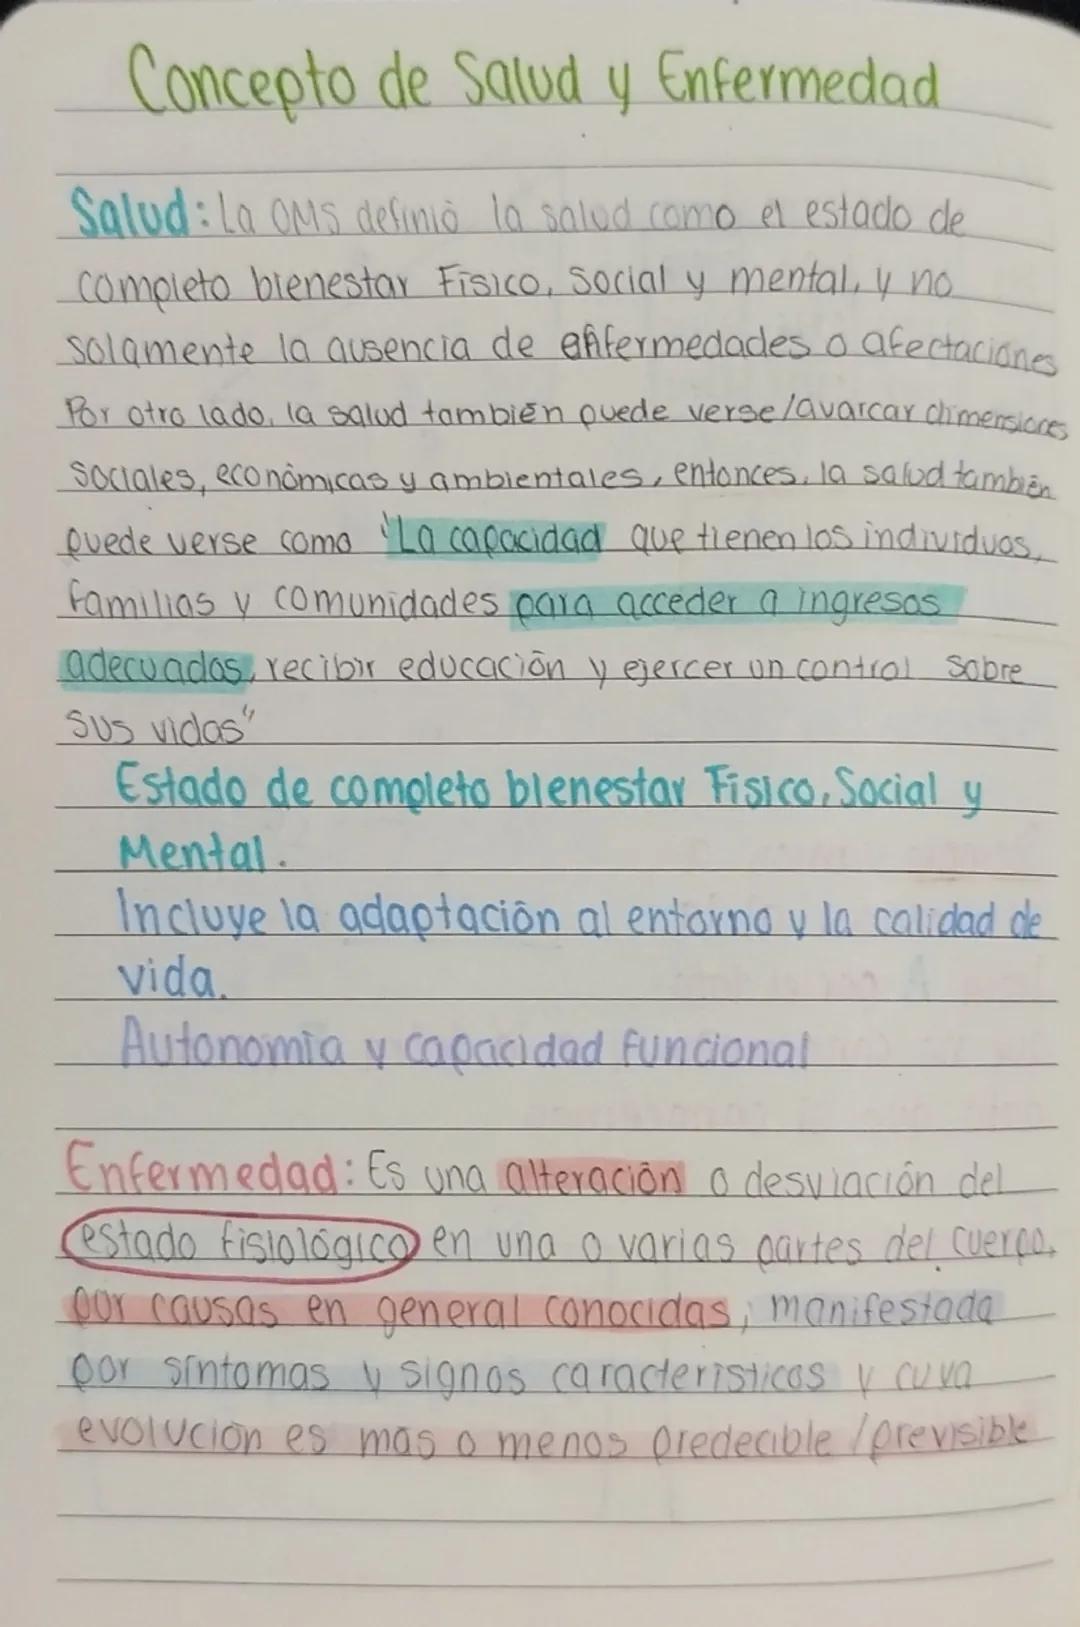 Concepto de Salud y Enfermedad
Salud: La OMS definió la salud como el estado de
completo bienestar Físico, Social y mental, y no
solamente la ausencia de enfermedades o afectaciones
Por otro lado, la salud también puede verse/avarcar dimensiones
sociales, económicas y ambientales, entonces, la salud también
puede verse como "La capacidad que tienen los individuos,
familias y comunidades para acceder a ingresos
adecuados, recibir educación y ejercer un control sobre
sus vidas"
Estado de completo bienestar Físico, Social y
Mental.
Incluye la adaptación al entorno y la calidad de
vida.
Autonomía y capacidad funcional
Enfermedad: Es una alteración o desviación del
estado fisiológico en una o varias partes del cuerpo,
por causas en general conocidas, manifestada
por síntomas y signos característicos y cuya
evolución es más o menos predecible/previsible